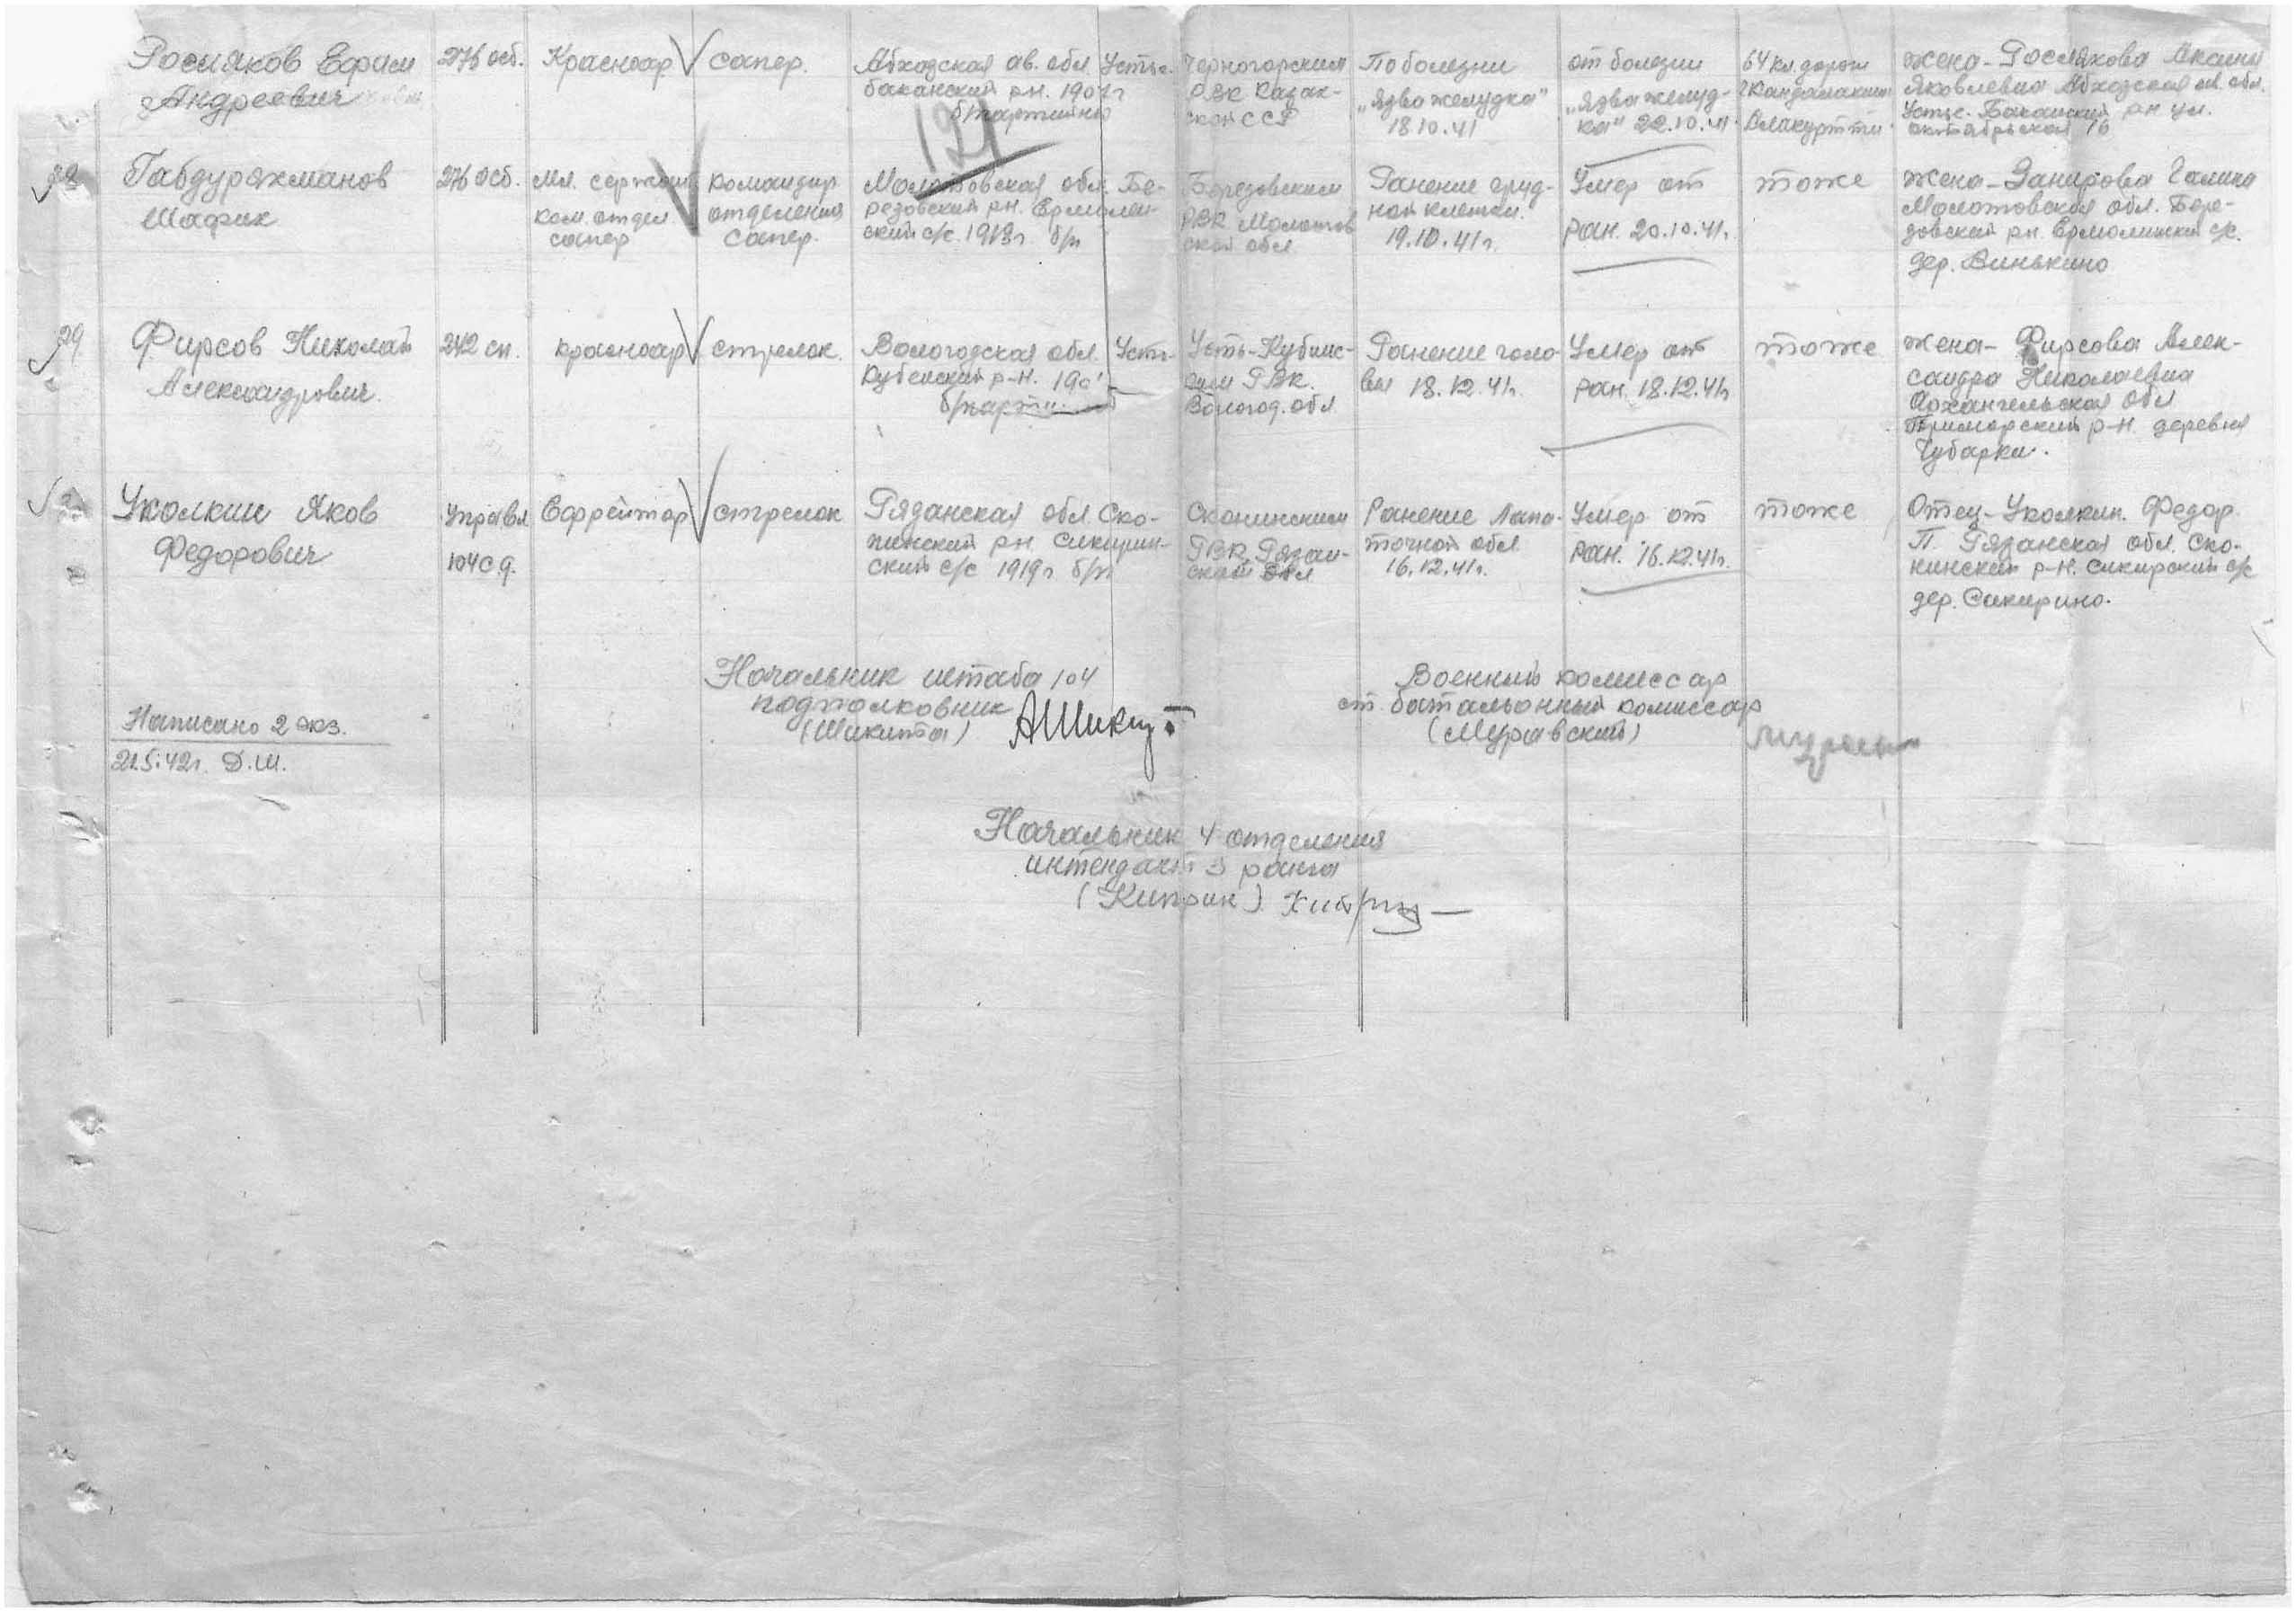 Росляков Ефим
Андреевич
276 осб.
Красноар
сапер.
Абхазская ав. обл. Усть-
баканский рн. 1901г
б/партийно
Черногорским
РВК Казак-
ской ССР
По болезни
„Язва желудка"
18.10.41
от болезни
„Язва желуд-
ка" 22.10.41
64 км. дороги
Кандалакша
Алакуртти
Жена - Рослякова Аксинья
Яковлевна Абхазская ав. обл.
Усть-Баканский рн ул.
октябрьская 16
121
28
Габдурахманов
Шафик
276 осб.
Мл. сержант
ком. отдел
сапер
командир
отделения
сапер.
Молотовская обл. Бе-
резовский рн. Ермолин-
ский с/с. 1913г. б/п
Березовским
РВК Молотов
ской обл
Ранение груд-
ной клетки.
19.10.41г.
Умер от
ран. 20.10.41г.
тоже
Жена - Занирова Галина
Молотовская обл. Бере-
зовский рн. Ермолинский с/с.
дер. Винькино
29
Фирсов Николай
Александрович.
242 сп.
красноар
стрелок.
Вологодская обл. Усть-
Кубенский р-н. 190
б/парти
Усть-Кубинс-
ким РВК.
Вологод. обл
Ранение голо-
вы 18.12.41г.
Умер от
ран. 18.12.41г
тоже
Жена - Фирсова Алек-
сандра Николаевна
Архангельская обл
Приморский р-н. деревня
Чубарки.
Уколкин Яков
Федорович
Управл
104 с.д.
Ефрейтор
стрелок
Рязанская обл. Ско-
пинский рн. Секирин-
ский с/с 1919г б/п
Скопинским
РВК Рязан-
ской обл
Ранение Лопа-
точной обл.
16.12.41г.
Умер от
ран. 16.12.41г.
тоже
Отец - Уколкин. Федор
П. Рязанская обл. Ско-
пинский р-н. Секирский с/с
дер. Секирино.
Начальник штаба 104
подполковник
(Шикита)
АШикит
Военный комиссар
ст. батальонный комиссар
(Муравский)
Написано 2 экз.
21.5.42г. Д.Ш.
Начальник 4 отделения
интендант 3 ранга
(Киприк)